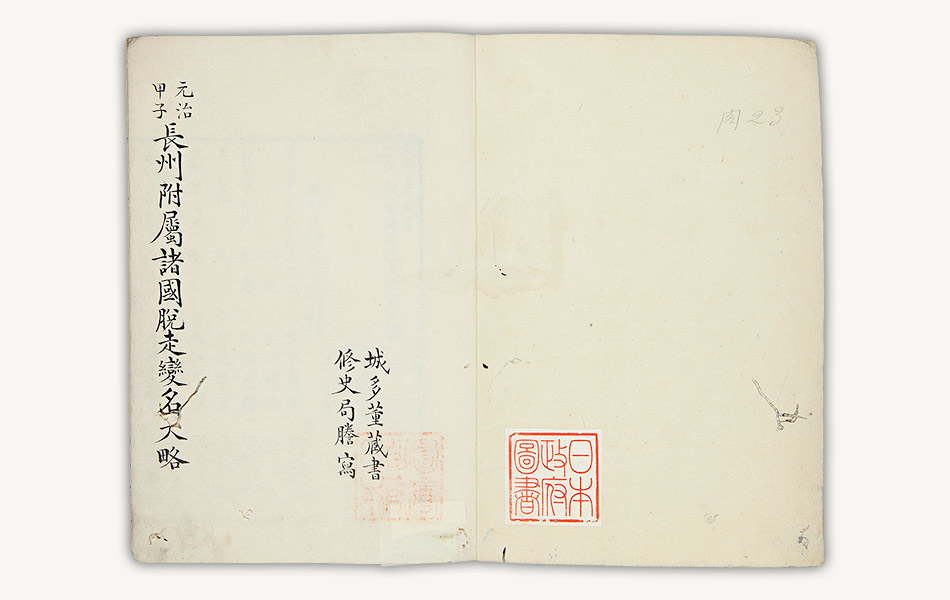 内23
日本
政府
圖書
城多董蔵書
修史局謄寫
元治
甲子
長州附屬諸國脫走變名大略